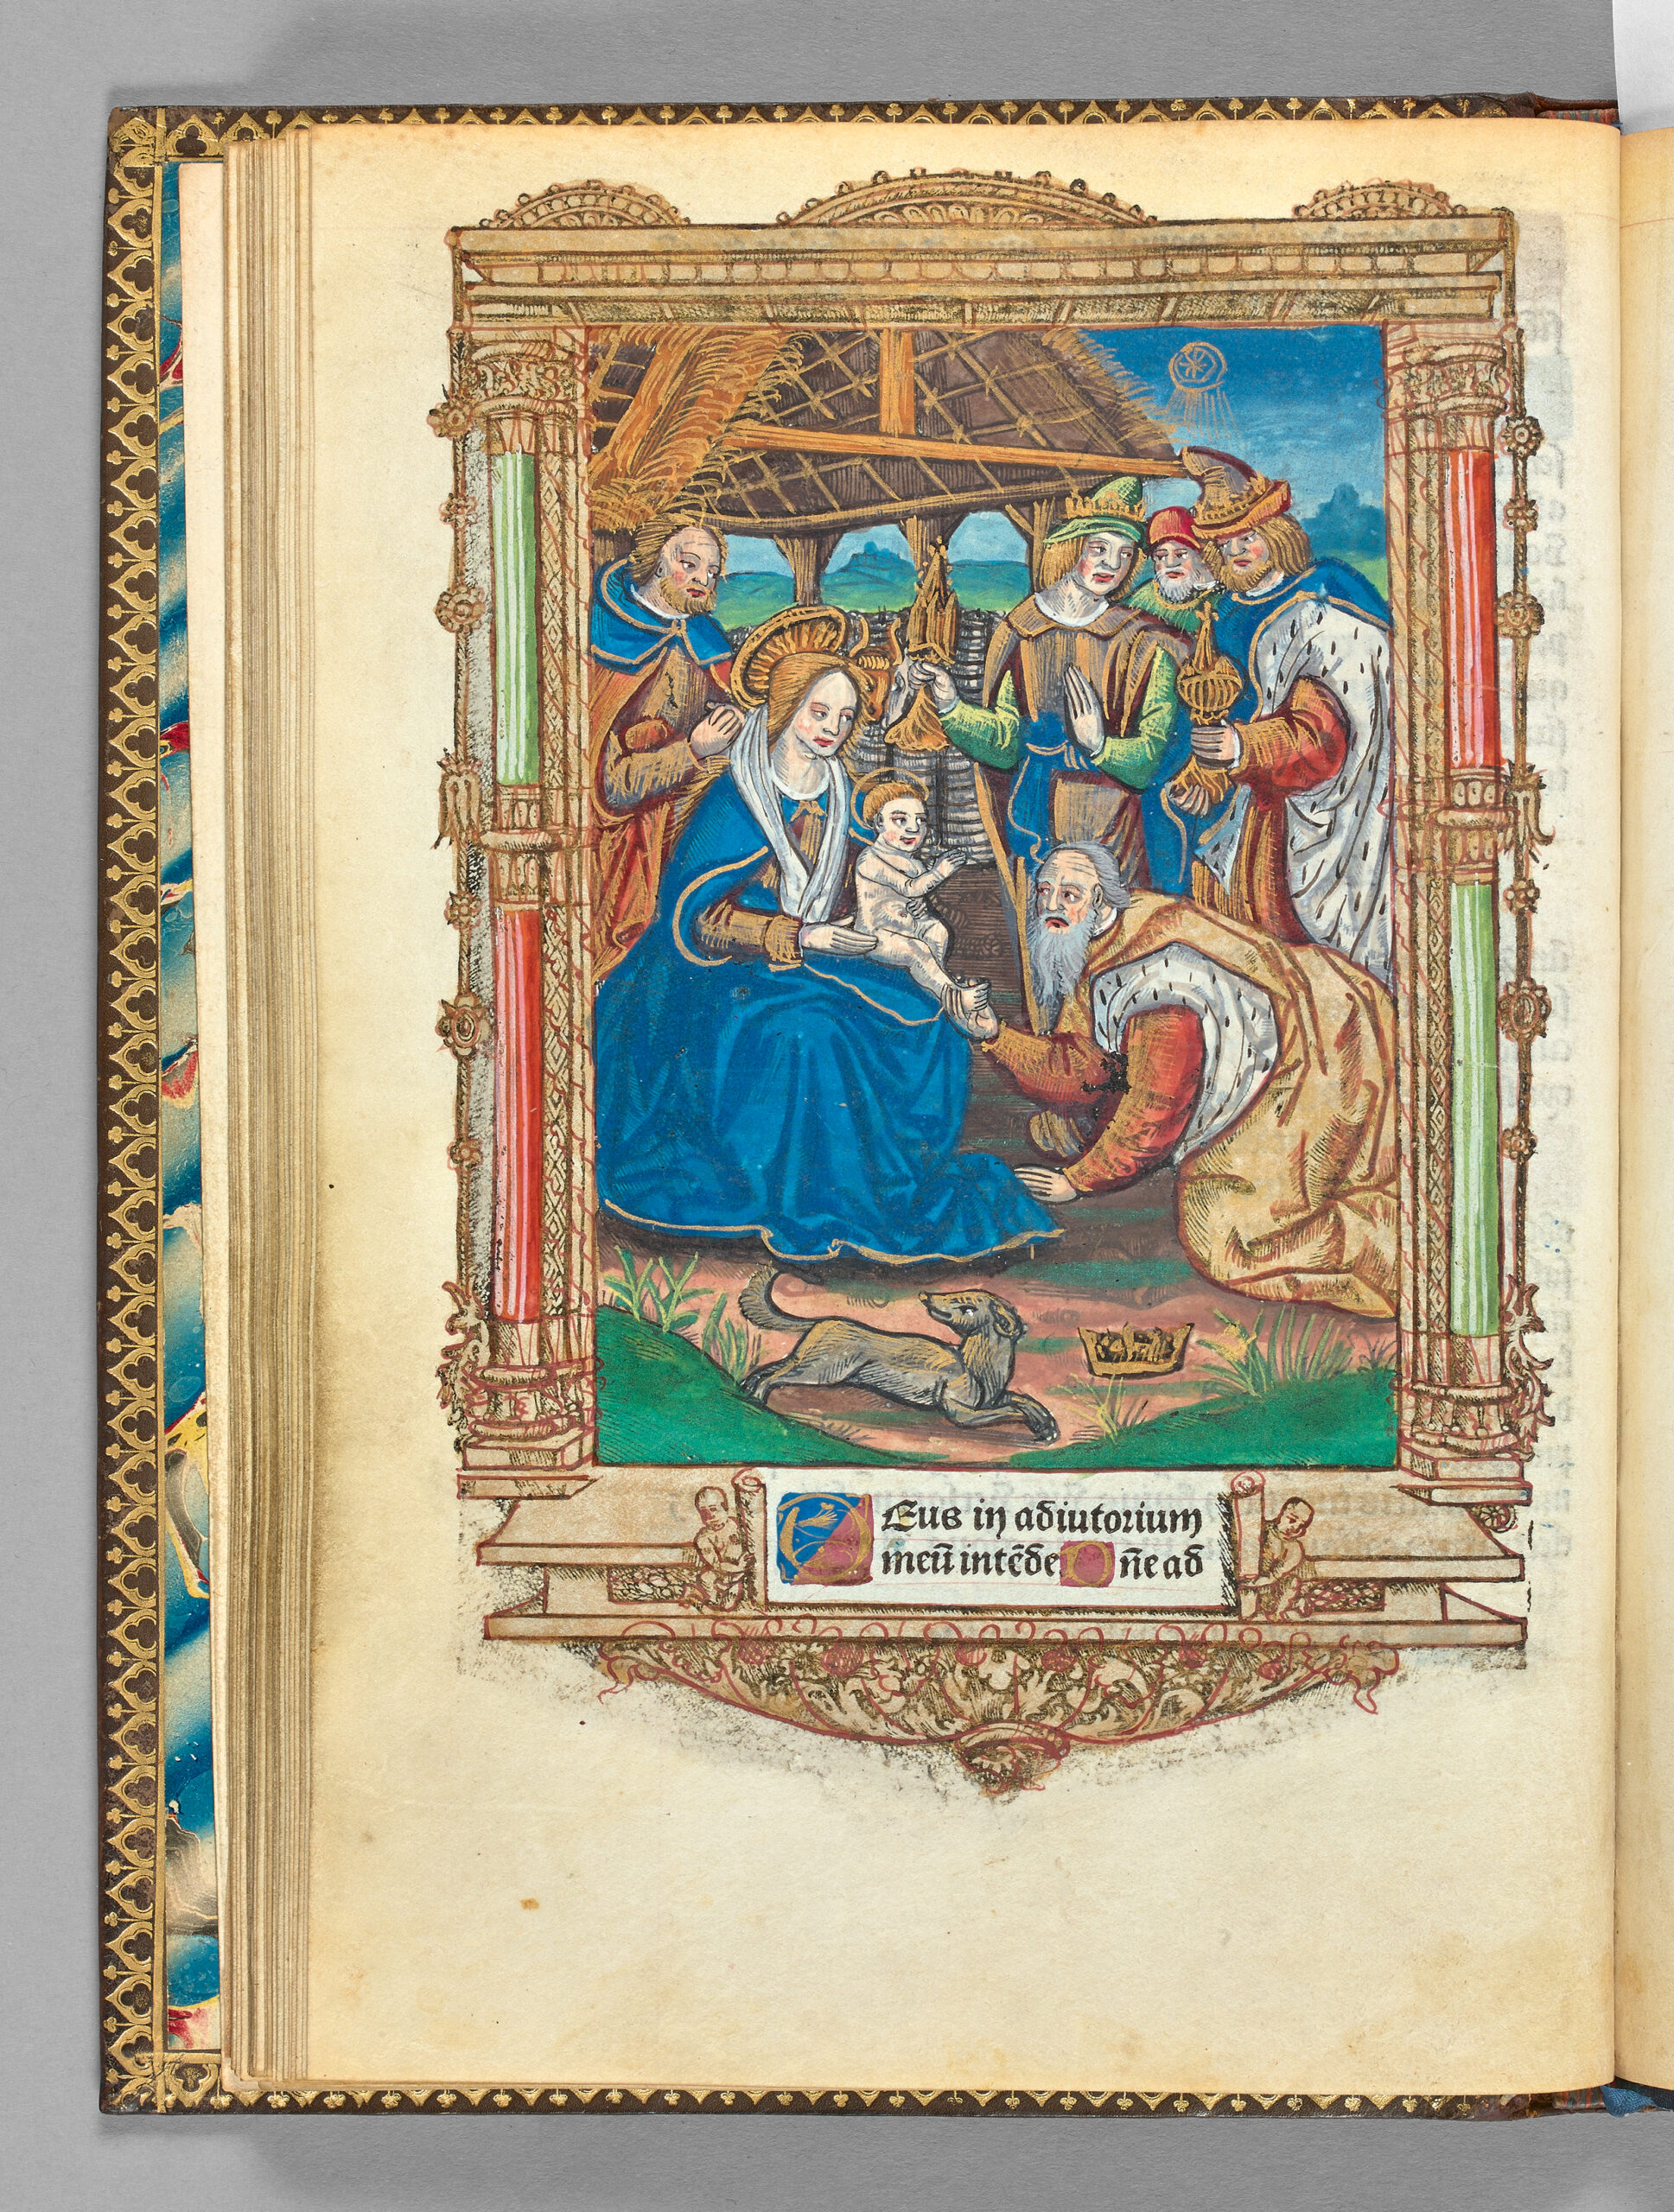 Deus in adiutorium
meū intēde Dn̄e ad